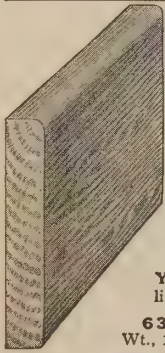 Y
li
63
Wt.,